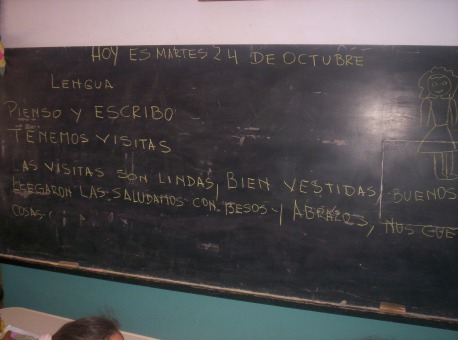 HOY ES MARTES 24 DE OCTUBRE
LENGUA
PIENSO Y ESCRIBO
TENEMOS VISITAS
AS VISITAS SON LINDAS, BIEN VESTIDAS, BUENOS
LLEGARON LAS SALUDAMOS CON BESOS Y ABRAZOS, NOS CUE
COSAS.